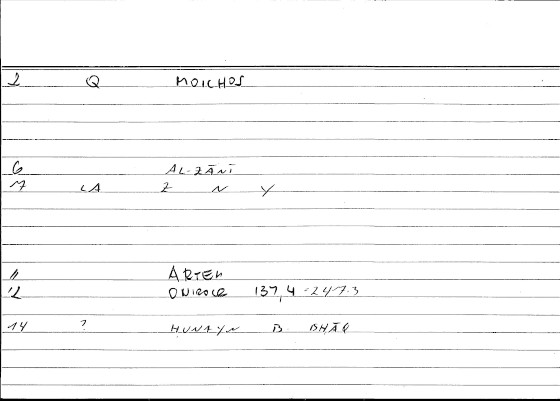 2 Q MOICHOS
6 AL-ZĀNĪ
7 LA Z N Y
11 ARTEM
12 ONIROCR 137,4 = 247.3
14 ? HUNAYN B